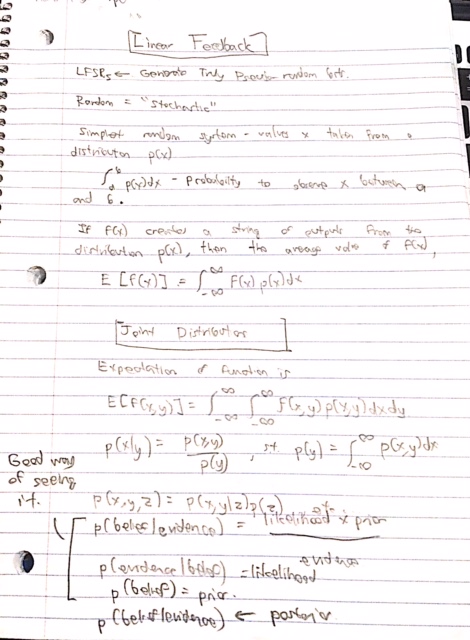 Linear Feedback
LFSRs ← Generate Truly Pseudo random bits.
Random = "Stochastic"
Simplest random system - values x taken from a
distribution p(x)
∫_a^b p(x)dx - Probability to observe x between a
and b.
If f(x) creates a string of outputs from the
distribution p(x), then the average value of f(x),
E[f(x)] = ∫_{-∞}^{∞} f(x) p(x)dx
Joint Distribution
Expectation of function is
E[f(x,y)] = ∫_{-∞}^{∞} ∫_{-∞}^{∞} f(x,y) p(x,y) dx dy
p(x|y) = p(x,y) / p(y), st p(y) = ∫_{-∞}^{∞} p(x,y)dx
Good way
of seeing
it.
p(x,y,z) = p(x,y|z)p(z)
p(belief|evidence) = likelihood x prior
evidence
p(evidence|belief) = likelihood
p(belief) = prior.
p(belief|evidence) ← posterior